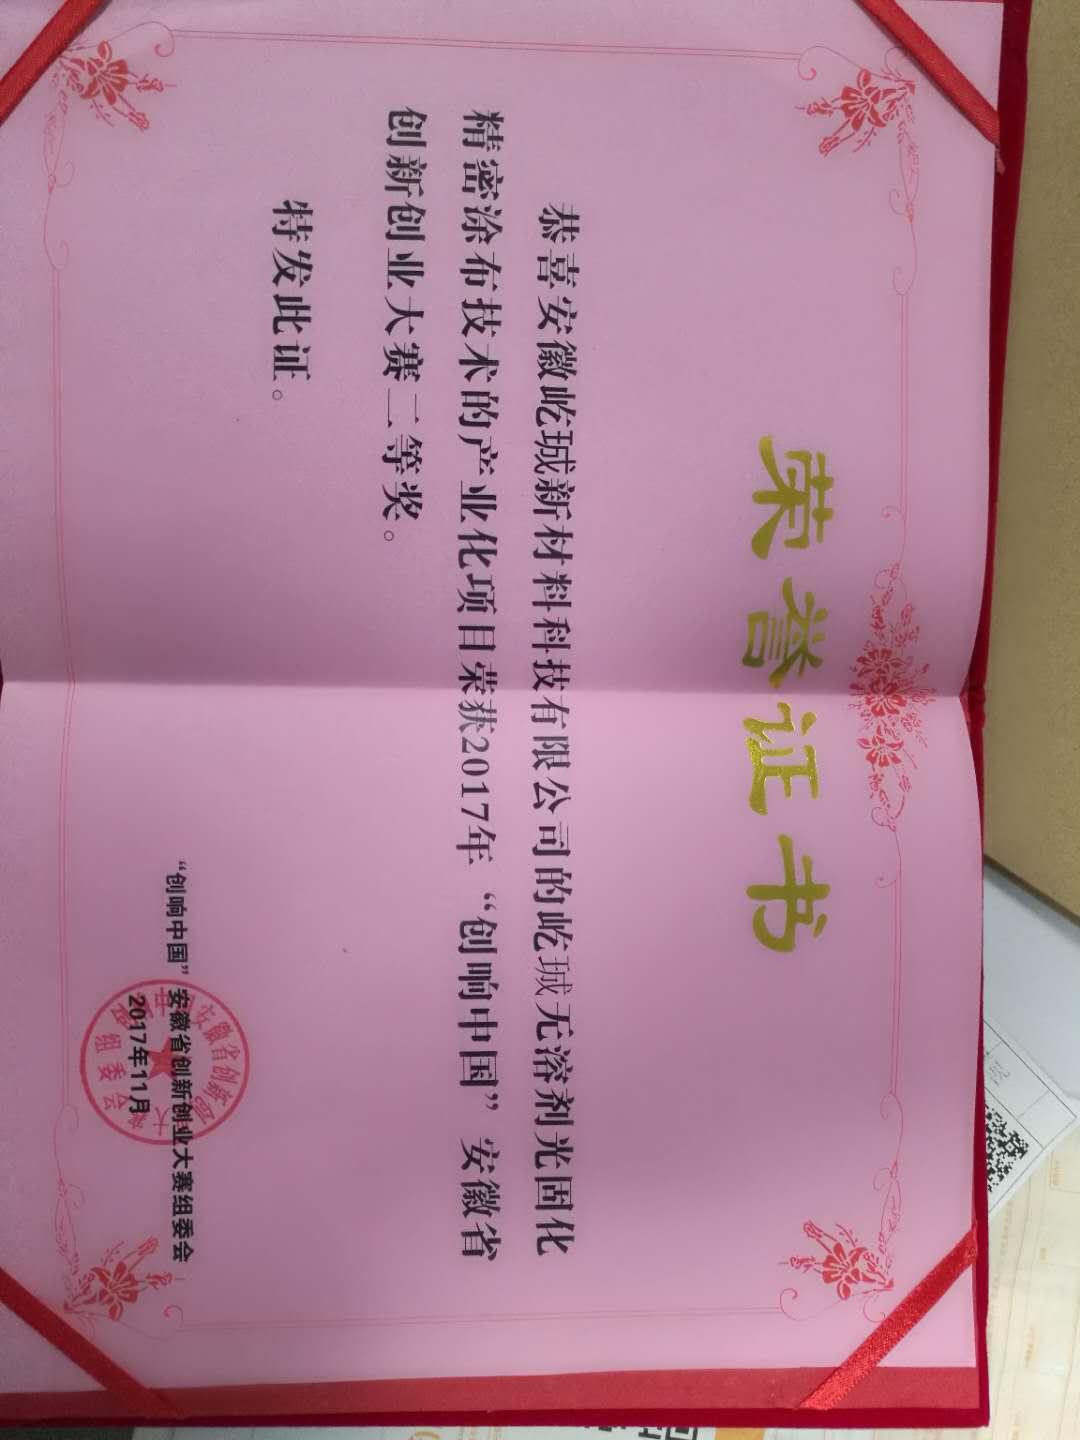 荣誉证书
恭喜安徽屹珹新材料科技有限公司的屹珹无溶剂光固化
精密涂布技术的产业化项目荣获2017年“创响中国”安徽省
创新创业大赛二等奖。
特发此证。
“创响中国”安徽省创新创业大赛组委会
2017年11月